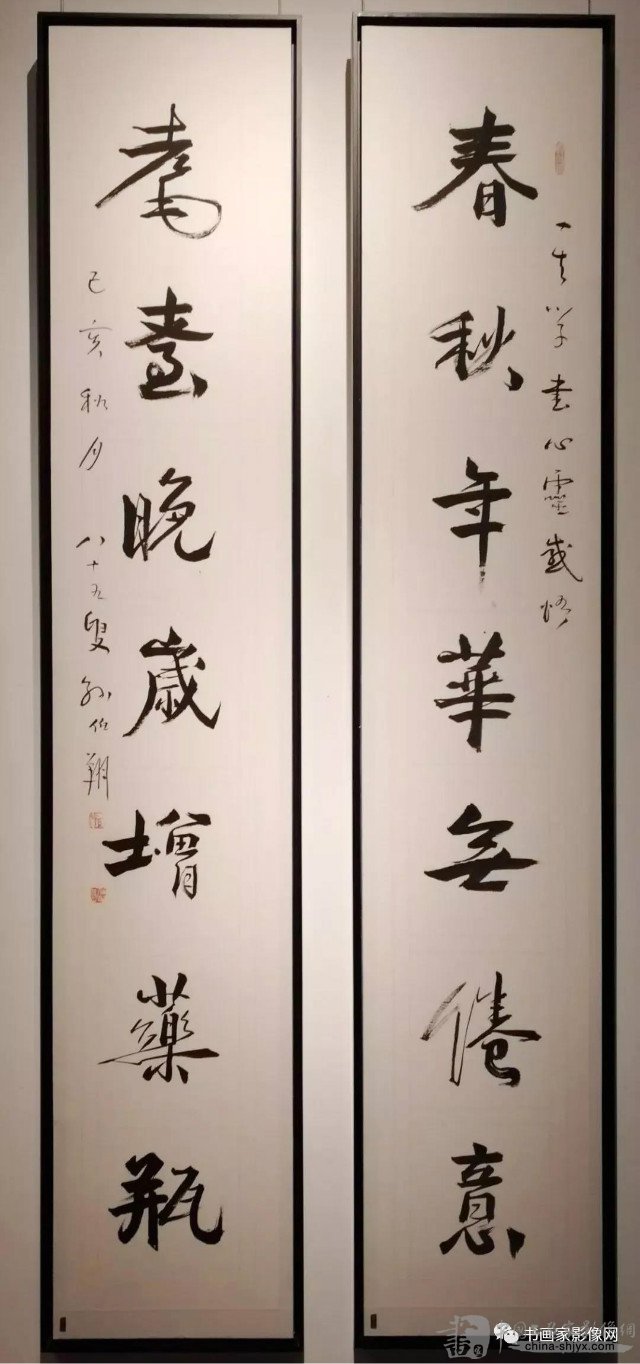 春秋年華無倦意
一生學書心靈感悟
耄耋晚歲增藥瓶
己亥秋月 八十五叟 孙伯翔
书画家影像网
china-shjyx.com